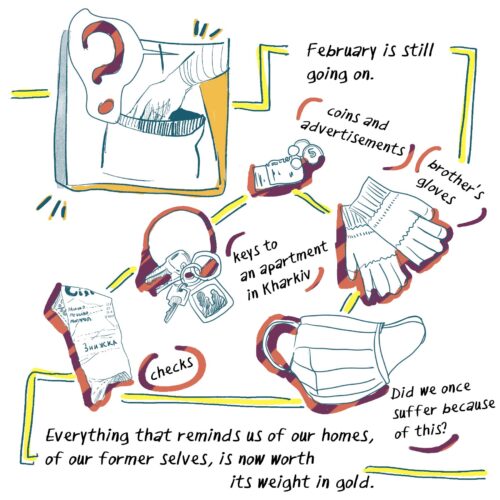 ?
February is still
going on.
coins and
advertisements
brother's
gloves
keys to
an apartment
in Kharkiv
ЗНИЖКА
checks
Did we once
suffer because
of this?
Everything that reminds us of our homes,
of our former selves, is now worth
its weight in gold.